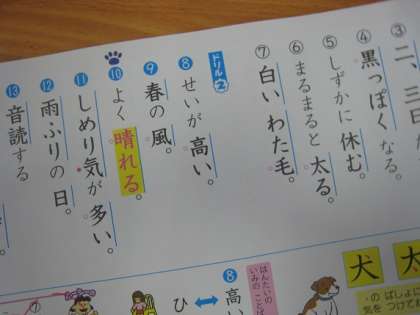 ③二、三日
④黒っぽくなる。
⑤しずかに休む。
⑥まるまると太る。
⑦白いわた毛。
ドリル2
⑧せいが高い。
⑨春の風。
⑩よく晴れる。
⑪しめり気が多い。
⑫雨ふりの日。
⑬音読する
太
犬
・のばしょに
気をつけて
はんたいの
いみのことば
⑧高い
ひ